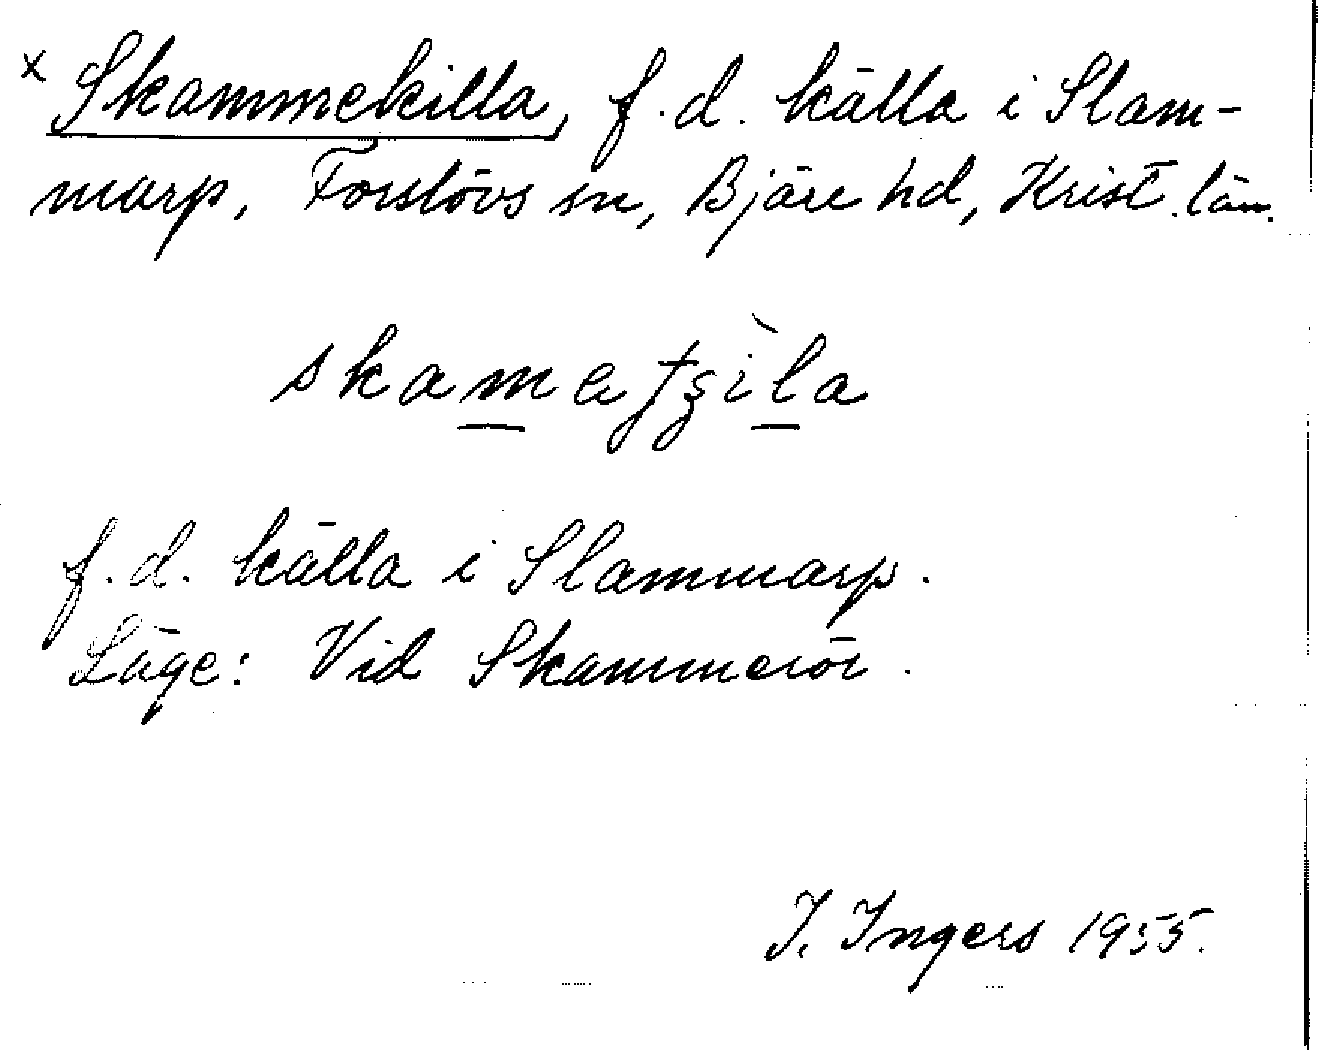 x Skammekilla, f.d. källa i Slam-
marp, Förslövs sn, Bjäre hd, Krist. län.
skameʃʒìla
f.d. källa i Slammarp.
Läge: Vid Skammerör.
I. Ingers 1955.